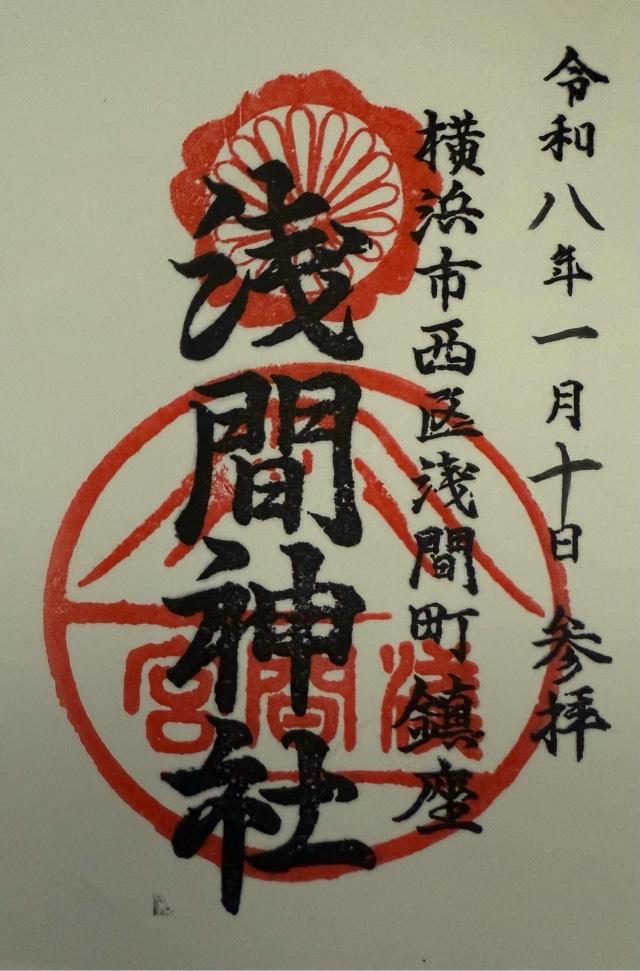 令和八年一月十日 参拝
横浜市西区浅間町鎮座
浅間神社
浅間宮